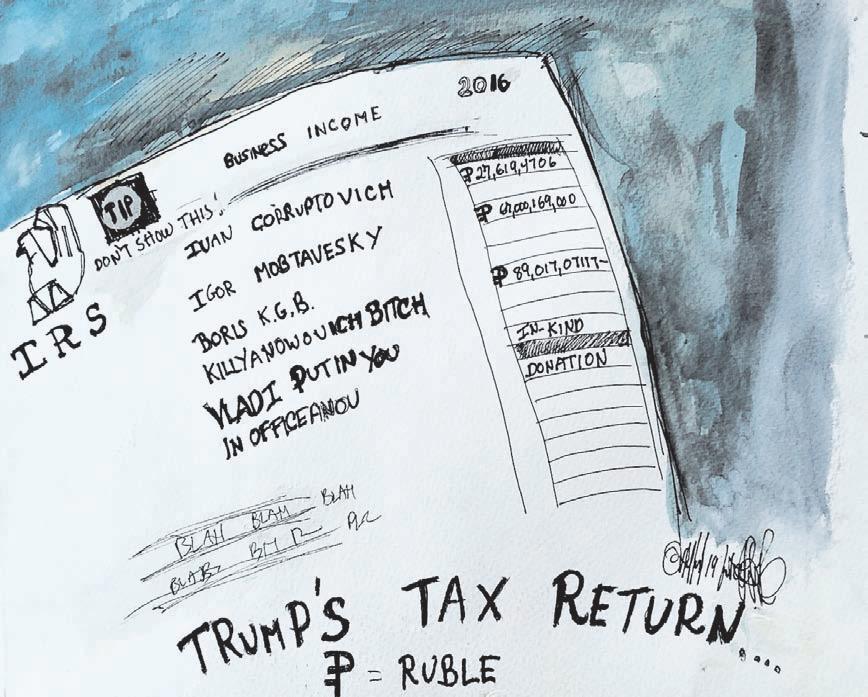 2016
BUSINESS INCOME
TIP
DON'T SHOW THIS!
IRS
IVAN CORRUPTOVICH
IGOR MOBTAVESKY
BORIS K.G.B.
KILLYANOWOVICH BITCH
VLADI PUTIN YOU
IN OFFICEANOU
₽27,619,4706
₽ 67,000,169,000
₽ 89,017,07117-
IN-KIND
DONATION
BLAH BLAH BLAH
TRUMP'S TAX RETURN....
₽ = RUBLE